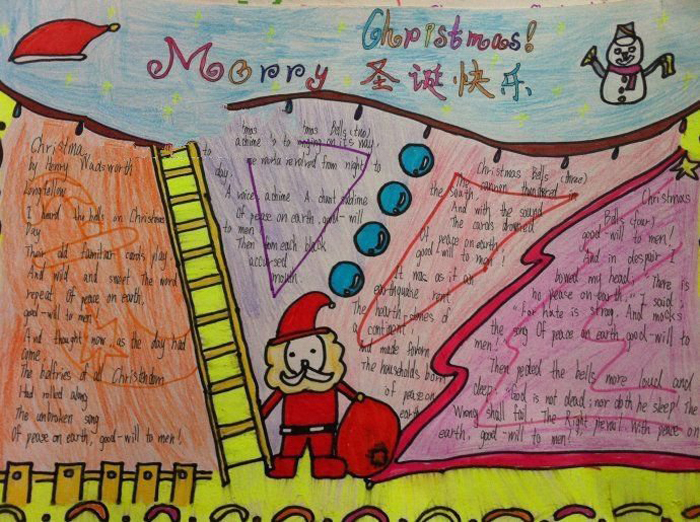 Christmas!
Merry 圣诞快乐
Christmas
by Henry Wadsworth
Longfellow
I heard the bells on Christmas
Day
Their old familiar carols play,
And wild and sweet The word
repeat Of peace on earth,
good-will to men!
And thought now, as the day had
come,
The belfries of all Christendom
Had rolled along
The unbroken song
Of peace on earth, good-will to men!
tmas Bells (two)
to
ringing on its way,
world revolved from night to
day,
A voice, a chime A chant sublime
Of peace on earth, good-will
to men
Then from each black
accursed
mouth
Christmas Bells (three)
the South,
cannon thundered
And with the sound
The carols drowned
Of peace on earth,
good-will to men!
It was as if an
earthquake rent
The hearth-stones of
a continent
And made forlorn
The households born
of peace on
earth
Christmas
Bells (four)
good-will to men!
And in despair I
bowed my head; There is
no peace on earth, "I said;
for hate is strong, And mocks
the song Of peace on earth, good-will to
men!
Then pealed the bells more loud and
deep God is not dead; nor doth he sleep! The
Wrong shall fail, The Right prevail, With peace on
earth, good-will to men!